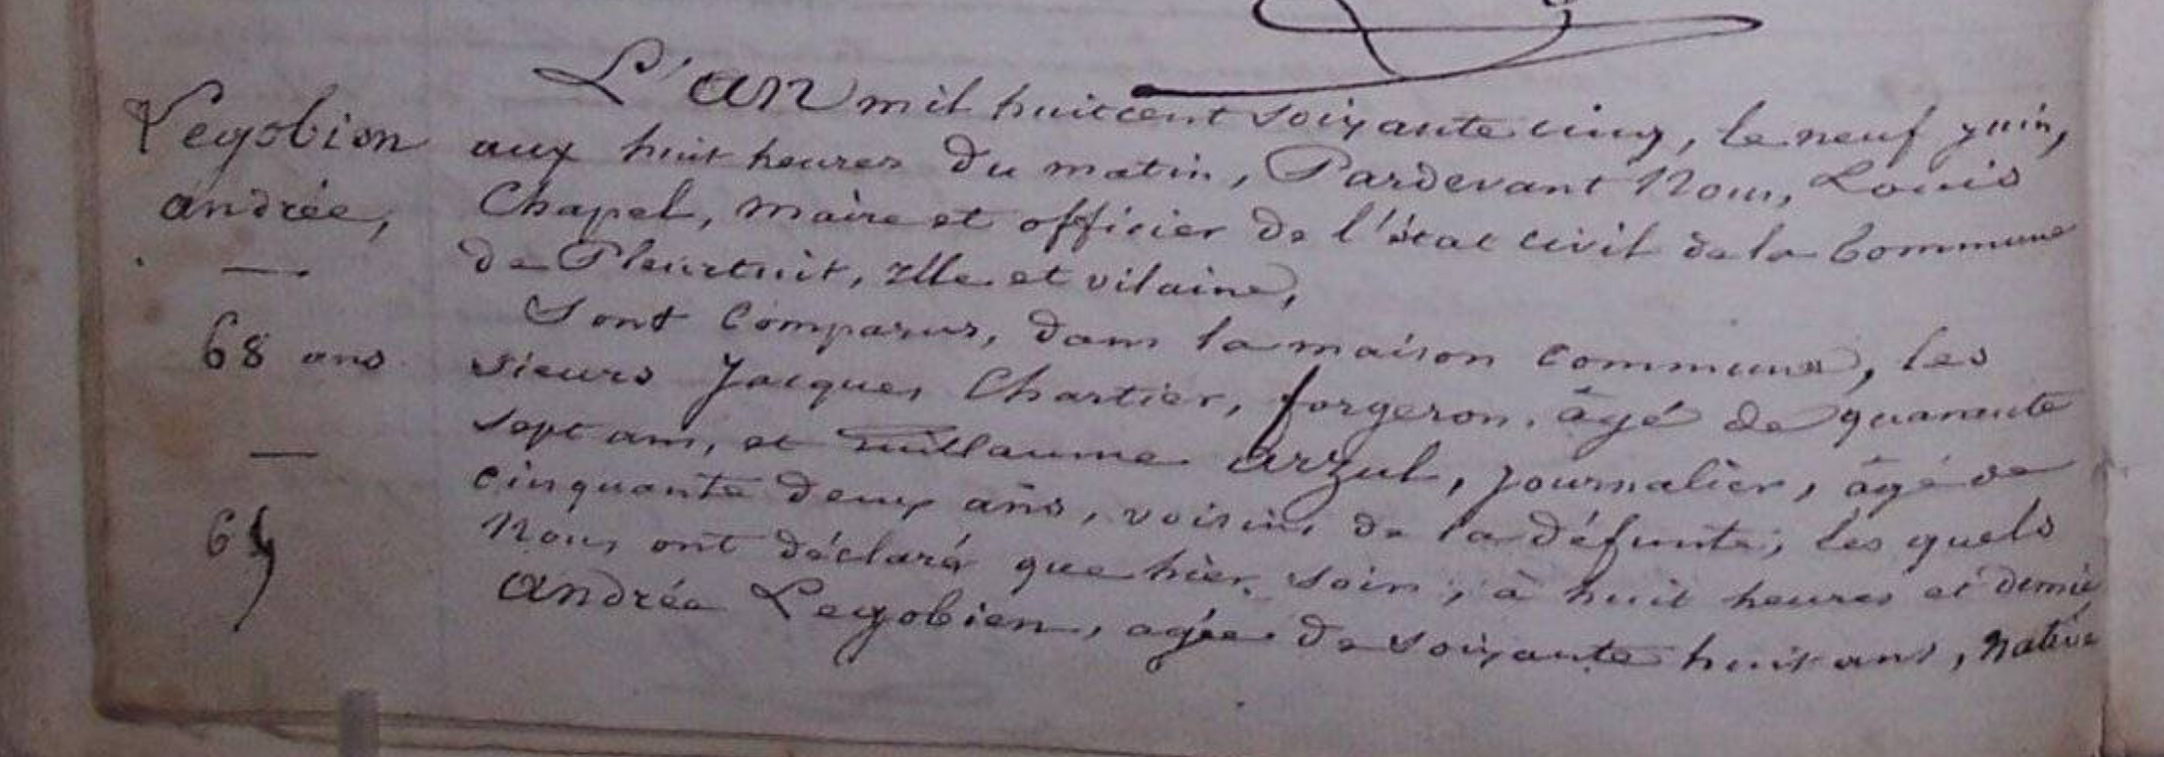 L'an mil huit cent soixante cinq, le neuf juin,
Legobien aux huit heures du matin, Pardevant Nous, Louis
andrée, Chapel, maire et officier de l'état civil de la Commune
de Pleurtuit, ille et vilaine,
Sont Comparus, dans la maison commune, les
68 ans sieurs Jacques Chartier, forgeron, âgé de quarante
sept ans, et Guillaume Arzul, journalier, âgé de
cinquante deux ans, voisins de la défunte; les quels
Nous ont déclaré que hier soir, à huit heures et demie
andrée Legobien, agée de soixante huit ans, native